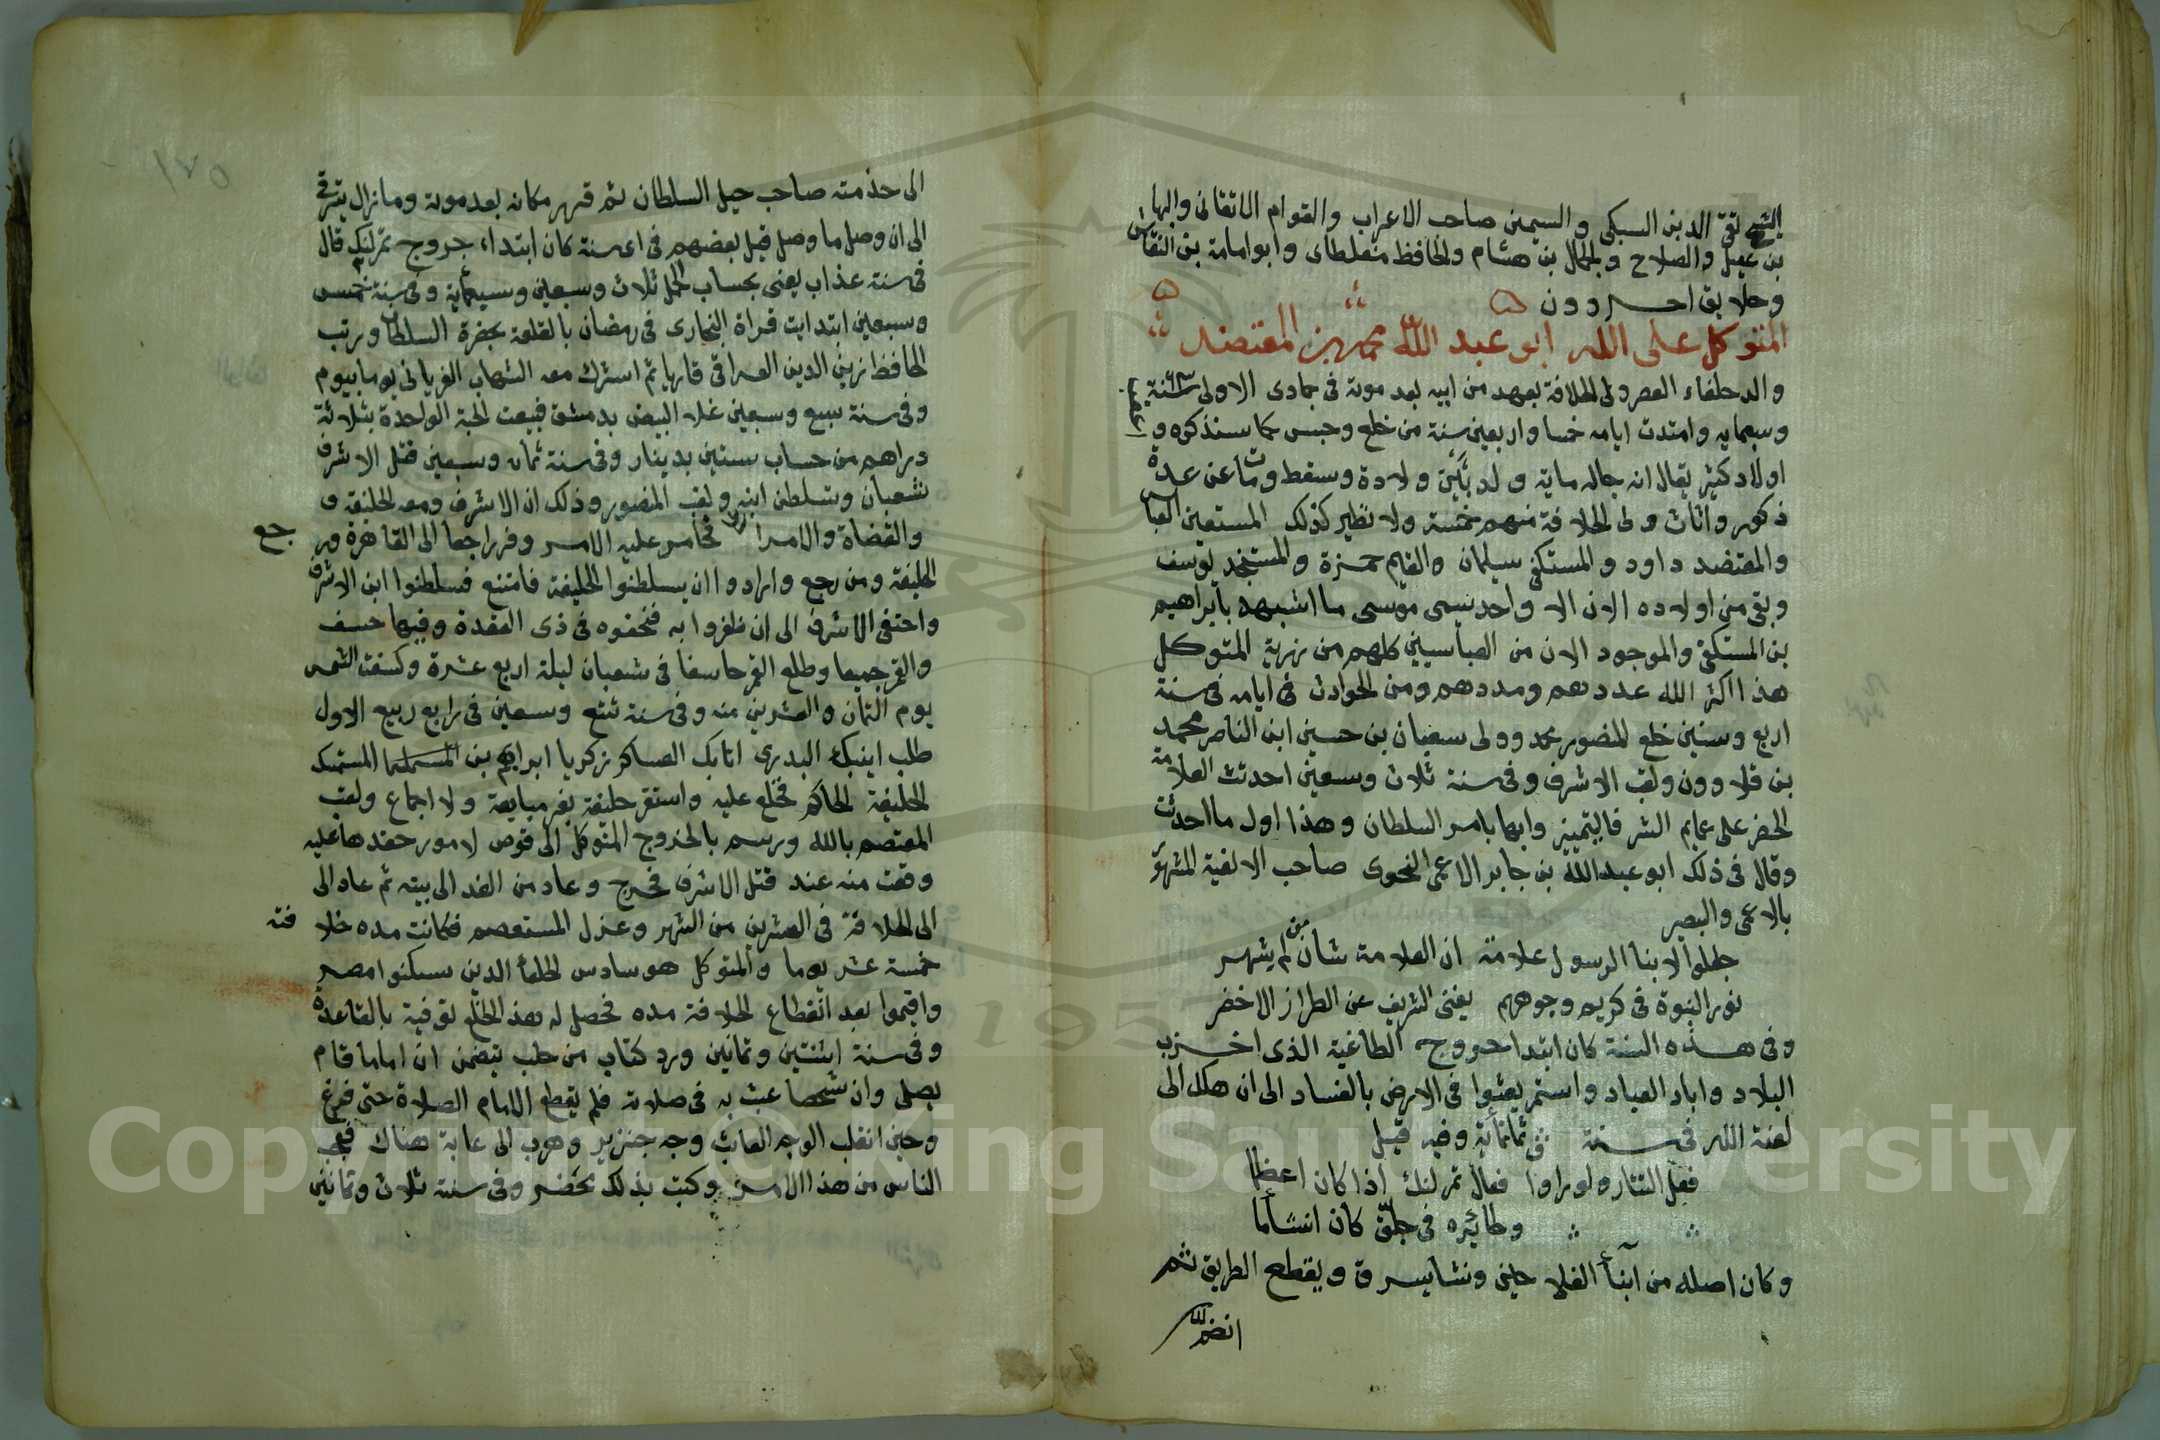 الشيخ تقي الدين السبكي والسيمين صاحب الاعراب والقوام الاتقاني والبها
بن عقيل والصلاح والجمال بن هشام والحافظ مغلطاى وابو امامة بن النقاش
وخلايق اخرون
المتوكل على الله ابو عبد الله محمد بن المعتضد
والد خلفاء العصر ولى الخلافة بعهد من ابيه بعد موته في جمادى الاولى سنة
وسبعمايه وامتدت ايامه خمسا واربعين سنة من خلع وحبس كما سنذكره و
اولاد كثير يقال انه جاله ماية ولد بين ولادة وسقط ومات عن عدة
ذكور واناث ولى الخلافة منهم خمسة ولا نظير لذلك المستعين العباس
والمعتضد داود والمستكفي سيلمان والقايم حمزة والمستنجد يوسف
وبقى من اولاده الان الا واحد يسمى موسى ما اشبهه بابراهيم
بن المستكفي والموجود الان من العباسيين كلهم من ذرية المتوكل
هذا اكثر الله عددهم ومددهم ومن الحوادث في ايامه في سنة
اربع وستين خلع المنصور محمد وولى سعبان بن حسين ابن الناصر محمد
بن قلاوون ولقب الاشرف وفى سنة ثلاث وسبعين احدثت العلامة
الخضر على عمايم الشرفا ليتميز وابها بامر السلطان وهذا اول ما احدثت
وقال في ذلك ابو عبد الله بن جابر الاعمى النحوى صاحب الالفية المشهور
بالاعمى والبصير
جعلوا لابنا الرسول علامة ان العلامة شان من لم يشهر
نور النبوة في كريم وجوههم يغنى الشريف عن الطراز الاخضر
وفى هذه السنة كان ابتدا خروج الطاغية الذى اخرب
البلاد واباد العباد واستمر يعثوا في الارض بالفساد الى ان هلك الى
لعنة الله في سنة ثمانماية وفيه قيل
فعل التتار ولو راوا فعال تمرلنك اذا كان اعظما
وطائره في جلق كان اشأما
وكان اصله من ابنأ الفلاحين ونشا يسرق ويقطع الطريق ثم
انضم
١٧٥
الى خذمته صاحب خيل السلطان ثم قهر مكانه بعد موته وما زال يترقى
الى ان وصل ما وصل قيل لبعضهم في اى سنة كان ابتداء خروج تمرلنك قال
في سنة عذاب يعنى بحساب الجمل ثلاث وسبعين وسبعماية وفى سنة خمس
وسبعين ابتدايت قراة البخارى في رمضان بالقلعة بحضرة السلطان ورتب
الحافظ زين الدين العراقي قاريا ثم اشرك معه الشهاب الغرياني يوما بيوم
وفى سنة سبع وسبعين غلا البيض بدمشق فبيعت الحبة الواحدة بثلاثة
دراهم من حساب ستين بدينار وفى سنة ثمان وسبعين قتل الاشرف
شعبان وتسلطن ابنه ولقب المنصور وذلك ان الاشرف ومعه الخليفة و
والقضاة والامرا فخامر عليه الامر وفر راجعا الى القاهرة ور
جع
الخليفة ومن رجع وارادوا ان يسلطنوا الخليفة فامتنع فسلطنوا ابن الاشرف
واختفى الاشرف الى ان ظفروا به فخنقوه في ذى القعدة وفيها خسف
والقمر جميعا وطلع القمر خاسفا في شعبان ليلة اربع عشرة وكسفت الشمس
يوم الثمان والعشرين منه وفى سنة تسع وسبعين في رابع ربيع الاول
طلب اينبك البدرى اتابك العساكر زكريا ابراهيم بن المستمسك
الخليفة الحاكم فخلع عليه واستقر خليفة بغير مبايعة ولا اجماع ولقب
المعتصم بالله ورسم بالخروج المتوكل الى قوص لامور حقدها عليه
وقعت منه عند قتل الاشرف فخرج وعاد من الغد الى بيته ثم عاد الى
الى الخلافة في العشرين من الشهر وعزل المستعصم فكانت مده خلا
فته
خمسة عشر يوما والمتوكل هو سادس الخلفأ الذين سكنوا مصر
واقيموا بعد انقطاع الخلافة مده فحصل له هذا الخلع توفية بالقاعدة
وفى سنة اثنتين وثمانين ورد كتاب من حلب يتضمن ان اماما قام
يصلى وان شخصا عبث به في صلاته فلم يقطع الامام الصلاة حتى فرغ
وحين انقلب الوجه العابث وجه خنزير وهرب الى غابة هناك فعجب
الناس من هذا الامر وكتب بذلك محضر وفى سنة ثلاث وثمانين
Copyright © King Saud University
1957